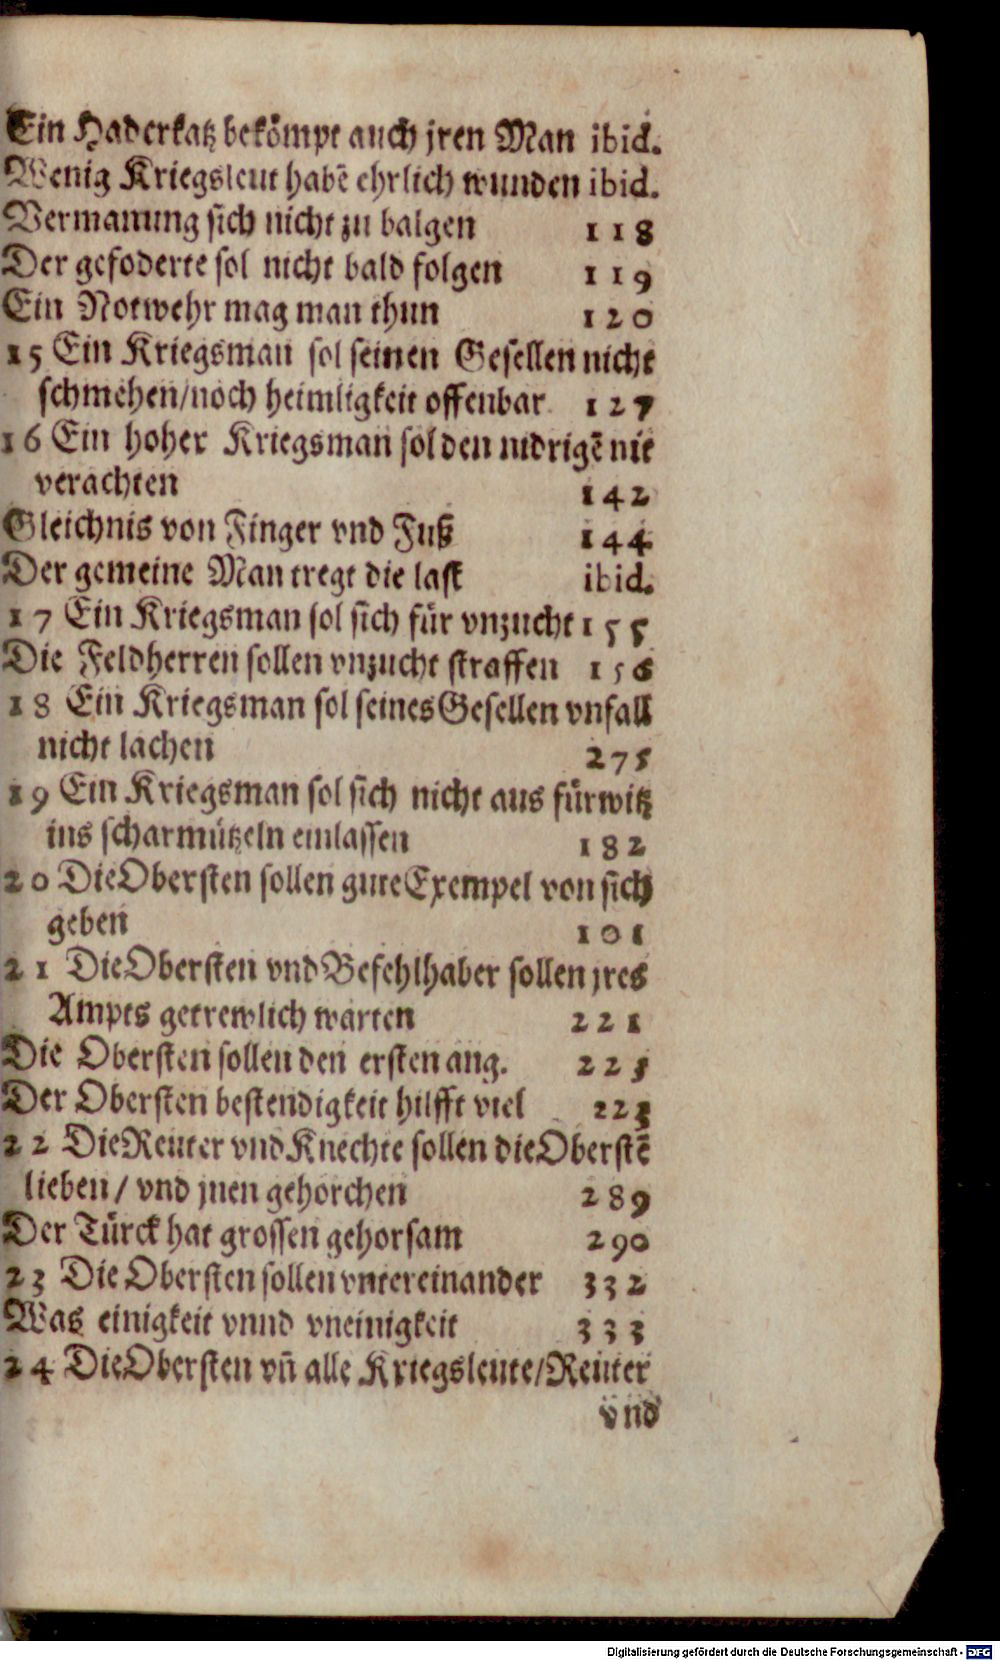 Ein Haderkatz bekömpt auch jren Man ibid.
Wenig Kriegsleut habē ehrlich wunden ibid.
Vermanung sich nicht zu balgen 118
Der gefoderte sol nicht bald folgen 119
Ein Notwehr mag man thun 120
15 Ein Kriegsman sol seinen Gesellen nicht
schmehen/noch heimligkeit offenbar. 127
16 Ein hoher Kriegsman sol den nidrigē nit
verachten 142
Gleichnis von Finger vnd Fuß 144
Der gemeine Man tregt die last ibid.
17 Ein Kriegsman sol sich für vnzucht 155
Die Feldherren sollen vnzucht straffen 156
18 Ein Kriegsman sol seines Gesellen vnfall
nicht lachen 275
19 Ein Kriegsman sol sich nicht aus fürwitz
ins scharmützeln einlassen 182
20 Die Obersten sollen gute Exempel von sich
geben 101
21 Die Obersten vnd Befehlhaber sollen jres
Ampts getrewlich warten 221
Die Obersten sollen den ersten ang. 223
Der Obersten bestendigkeit hilfft viel 223
22 Die Reuter vnd Knechte sollen die Oberstē
lieben / vnd jnen gehorchen 289
Der Türck hat grossen gehorsam 290
23 Die Obersten sollen vntereinander 332
Was einigkeit vnnd vneinigkeit 333
24 Die Obersten vn̄ alle Kriegsleute/Reuter
vnd
Digitalisierung gefördert durch die Deutsche Forschungsgemeinschaft - DFG